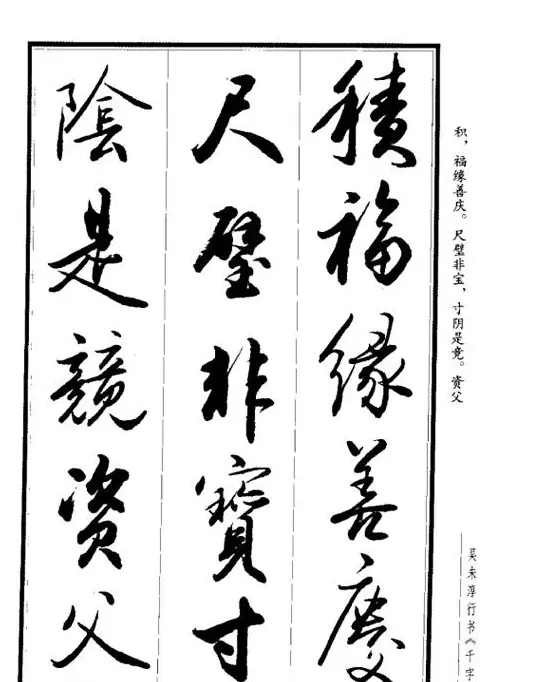 積福緣善慶
尺璧非寶寸
陰是競資父
积，福缘善庆。尺璧非宝，寸阴是竞。资父
吴未淳行书《千字